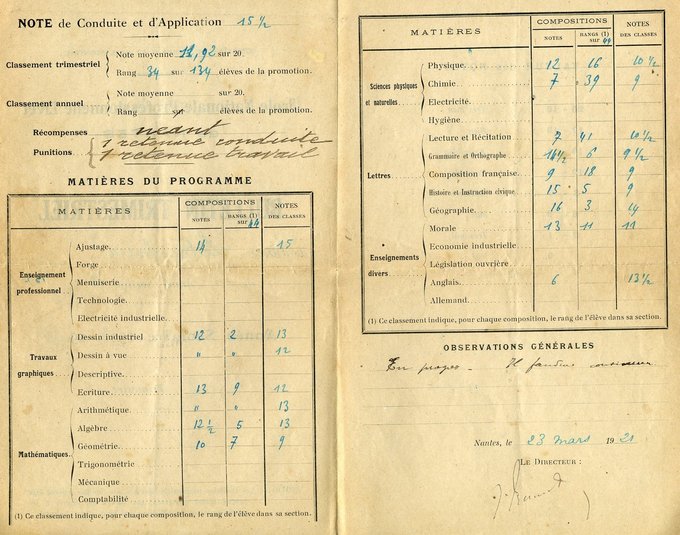 NOTE de Conduite et d'Application 15 ½
Classement trimestriel
Note moyenne 11,92 sur 20.
Rang 34 sur 134 élèves de la promotion.
Classement annuel
Note moyenne sur 20.
Rang sur élèves de la promotion.
Récompenses néant
Punitions 1 retenue conduite
1 retenue travail
MATIÈRES DU PROGRAMME
MATIÈRES COMPOSITIONS NOTES RANGS (1) sur 44 NOTES DES CLASSES
Enseignement professionnel
Ajustage 14 15
Forge
Menuiserie
Technologie
Electricité industrielle
Travaux graphiques
Dessin industriel 12 2 13
Dessin à vue " " 12
Descriptive
Ecriture 13 9 12
Mathématiques
Arithmétique " " 13
Algèbre 12 ½ 5 13
Géométrie 10 7 9
Trigonométrie
Mécanique
Comptabilité
(1) Ce classement indique, pour chaque composition, le rang de l'élève dans sa section.
MATIÈRES COMPOSITIONS NOTES RANGS (1) sur 44 NOTES DES CLASSES
Sciences physiques et naturelles
Physique 12 16 10 ½
Chimie 7 39 9
Electricité
Hygiène
Lettres
Lecture et Récitation 7 41 10 ½
Grammaire et Orthographe 6 9 ½
Composition française 9 18 9
Histoire et Instruction civique 15 5 9
Géographie 16 3 14
Enseignements divers
Morale 13 11 11
Economie industrielle
Législation ouvrière
Anglais 6 13 ½
Allemand
(1) Ce classement indique, pour chaque composition, le rang de l'élève dans sa section.
OBSERVATIONS GÉNÉRALES
En progrès - Il faudra continuer
Nantes, le 23 mars 1921
LE DIRECTEUR :